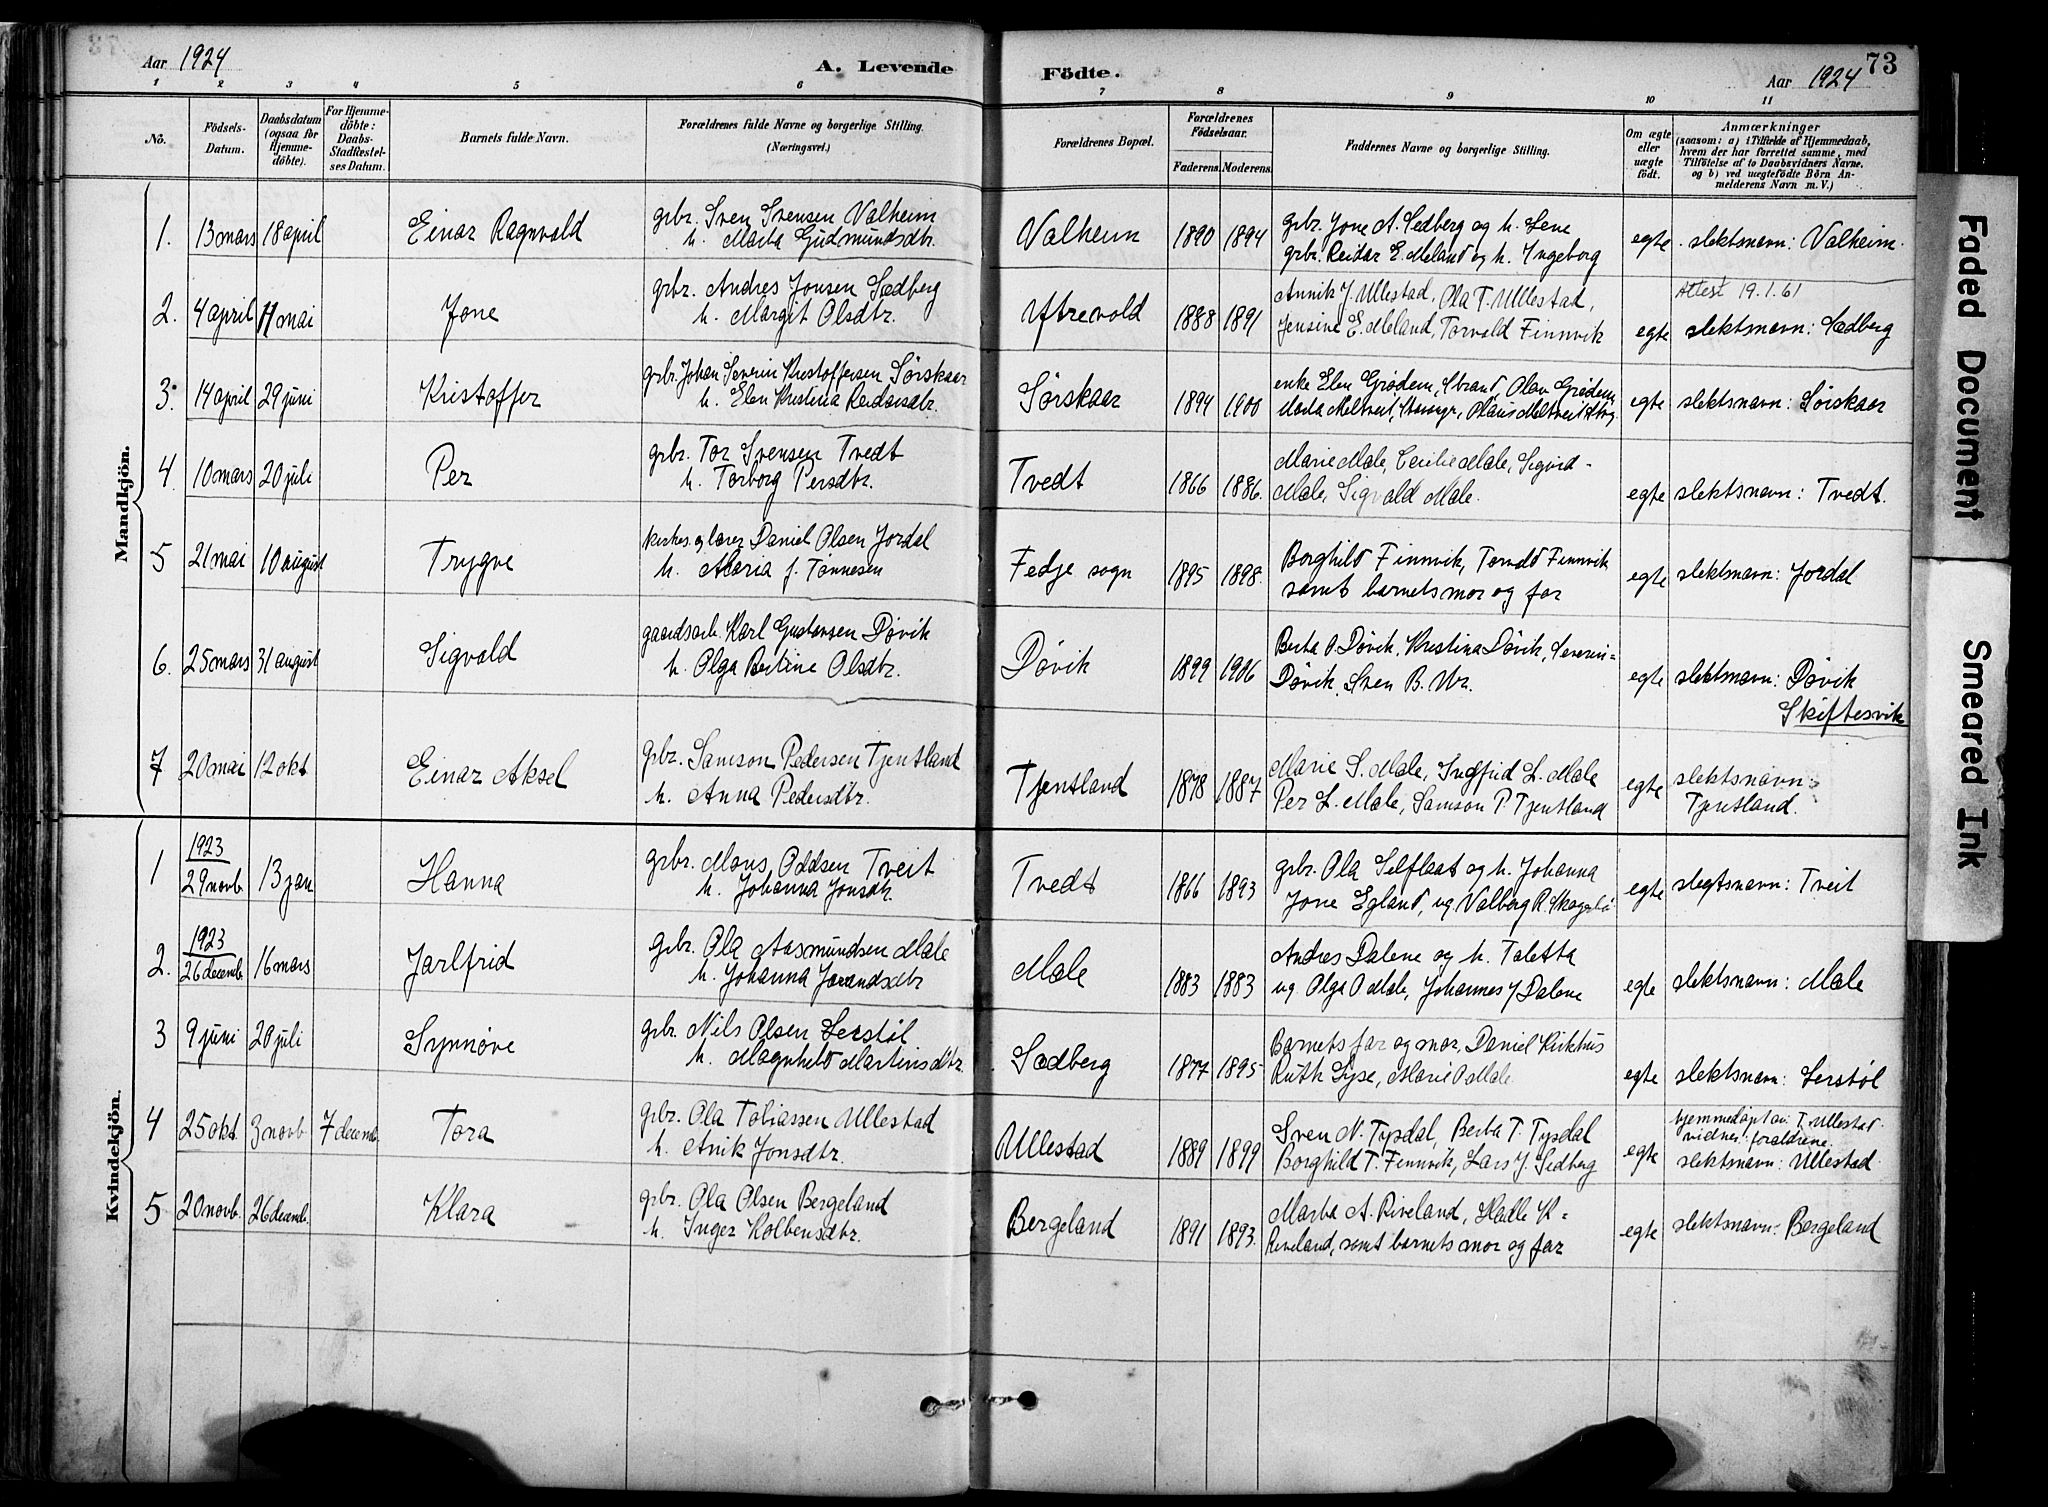 Aar 1924
A. Levende Födte.
Aar 1924
73
1 2 3 4 5 6 7 8 9 10 11
No.
Födsels-Datum.
Daabsdatum (ogsaa for Hjemme-döbte).
For Hjemme-döbte: Daabs-Stadfæstel-ses Datum.
Barnets fulde Navn.
Forældrenes fulde Navne og borgerlige Stilling. (Næringsvei.)
Forældrenes Bopæl.
Forældrenes Födselsaar.
Faderens. Moderens.
Faddernes Navne og borgerlige Stilling.
Om ægte eller uægte födt.
Anmærkninger (saasom: a) i Tilfælde af Hjemmedaab, hvem der har forrettet samme, med Tilföielse af to Daabsvidners Navne, og b) ved uægtefödte Börn An-melderens Navn m. V.)
Mandkjön.
1. 13 mars 18 april Einar Ragnvald
grbr. Sven Svensen Valheim
h. Marta Gudmundsdtr.
Valheim 1890 1894
grbr. Jone A. Sedberg og h. Lene
grbr. Reidar E. Meland og h. Ingeborg
egte slektsnavn: Valheim.
2. 4 april 11 mai Jone
grbr. Andres Jonsen Sædberg
h. Margit Olsdtr.
Ytrevold 1888 1891
Annik J. Ullestad, Ola T. Ullestad,
Jensine E. Meland, Torvald Finnvik
egte
Attest 19.1.61
slektsnavn: Sædberg
3. 14 april 29 juni Kristoffer
grbr. Johan Severin Kristoffersen Sörskaar
h. Elen Kristina Reidarsdtr.
Sörskaar 1894 1900
enke Elen Grödem, Strand, Olav Grödem
egte slektsnavn: Sörskaar
4. 10 mars 20 juli Per
grbr. Tor Svensen Tvedt
h. Torborg Persdtr.
Tvedt 1866 1886.
Marie Male, Cecilie Male, Sigvid
Male, Sigvald Male.
egte slektsnavn: Tvedt.
5 21 mai 10 august Trygve
kirkes. og lærer Daniel Olsen Jordal
h. Maria f. Tönnesen
Fedje sogn 1895 1898.
Borghild Finnvik, Torvald Finnvik
samt barnets mor og far
egte slektsnavn: Jordal
6. 25 mars 31 august Sigvald
gaardsarb. Karl Gustavsen Dövik
h. Olga Bertine Olsdtr.
Dövik 1899 1906
Berta O. Dövik, Kristina Dövik, Severin=
Dövik, Sven B. Ur.
egte slektsnavn: Dövik
Skiftesvik
7 20 mai 12 okt Einar Aksel
grbr. Samson Pedersen Tjentland
h. Anna Pedersdtr.
Tjentland 1878 1887
Marie S. Male, Ingfrid L. Male
Per L. Male, Samson P. Tjentland
egte slektsnavn:
Tjentland.
Kvindekjön.
1 1923
29 novb. 13 jan Hanna
grbr. Mons Oddsen Tveit
h. Johanna Jonsdtr.
Tvedt 1866 1893
grbr. Ola Selflaat og h. Johanna
Jone Egland, ug. Valborg R.
egte slegtsnavn: Tveit
2. 1923
26 decemb. 16 mars Jarlfrid
grbr. Ola Aasmundsen Male
h. Johanna Jorandsdtr
Male 1883 1883
Andres Dalene og h. Taletta
ug. Olga O Male, Johannes J Dalene
egte slektsnavn: Male
3 9 juni 20 juli Synnöve
grbr. Nils Olsen Lerstöl
h. Magnhild Martinsdtr.
Sædberg 1877 1895
Barnets far og mor, Daniel Kirkhus
Ruth Lyse, Marie O Male
egte slektsnavn: Lerstöl
4 25 okt. 3 novb 7 decemb. Tora
grbr. Ola Tobiassen Ullestad
h. Anik Jonsdtr.
Ullestad 1889 1899
Sven N. Tysdal, Berta T. Tysdal
Borghild T. Finnvik, Lars J. Sedberg
egte
hjemmedöpt av T. Ullestad
vidner: foraldrene.
slektsnavn: Ullestad
5 20 novb. 26 decemb. Klara
grbr. Ola Olsen Bergeland
h. Inger Kolbensdtr.
Bergeland 1891 1893.
Marta A. Riveland, Halle K=
Riveland, samt barnets mor og far
egte slektsnavn: Bergeland
Faded Document
Smeared Ink